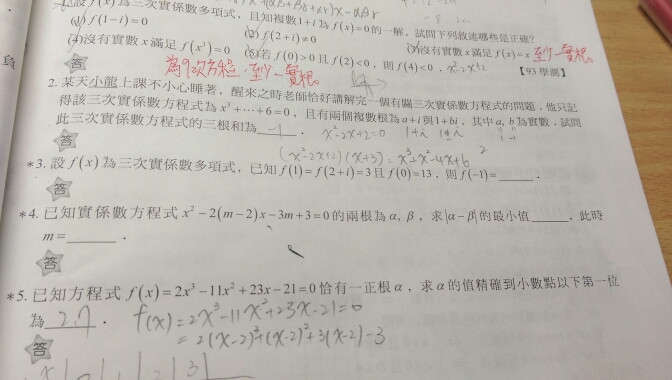 1.設f(x)為三次實係數多項式，且知複數1+i為f(x)=0的一解，試問下列敘述哪些是正確?
(1) f(1−i)=0 (2) f(2+i)≠0 (3)沒有實數x滿足f(x)=x 至少一實根。
(4)沒有實數x滿足f(x³)=0 (5)若f(0)>0且f(2)<0，則f(4)<0． x²-2x+2 【93學測】
答 為9次方程，至少一實根。
2. 某天小龍上課不小心睡著，醒來之時老師恰好講解完一個有關三次實係數方程式的問題，他只記
得該三次實係數方程式為x³+⋯+6=0，且有兩個複數根為a+i與1+bi，其中a, b為實數．試問
此三次實係數方程式的三根和為 -1 ． x²-2x+2=0 1+i 1-i
答 (x²-2x+2)(x+3)=x³+x²-4x+6
*3. 設f(x)為三次實係數多項式，已知f(1)=f(2+i)=3且f(0)=13，則f(−1)=______．
答
*4. 已知實係數方程式x²−2(m−2)x−3m+3=0的兩根為α, β，求|α−β|的最小值______，此時
m=______．
答
*5. 已知方程式f(x)=2x³−11x²+23x−21=0恰有一正根α，求α的值精確到小數點以下第一位
為 2.7 ． f(x)=2x³-11x²+23x-21=0
答 =2(x-2)³+(x-2)²+3(x-2)-3
x | 0 | 1 | 2 | 3 |